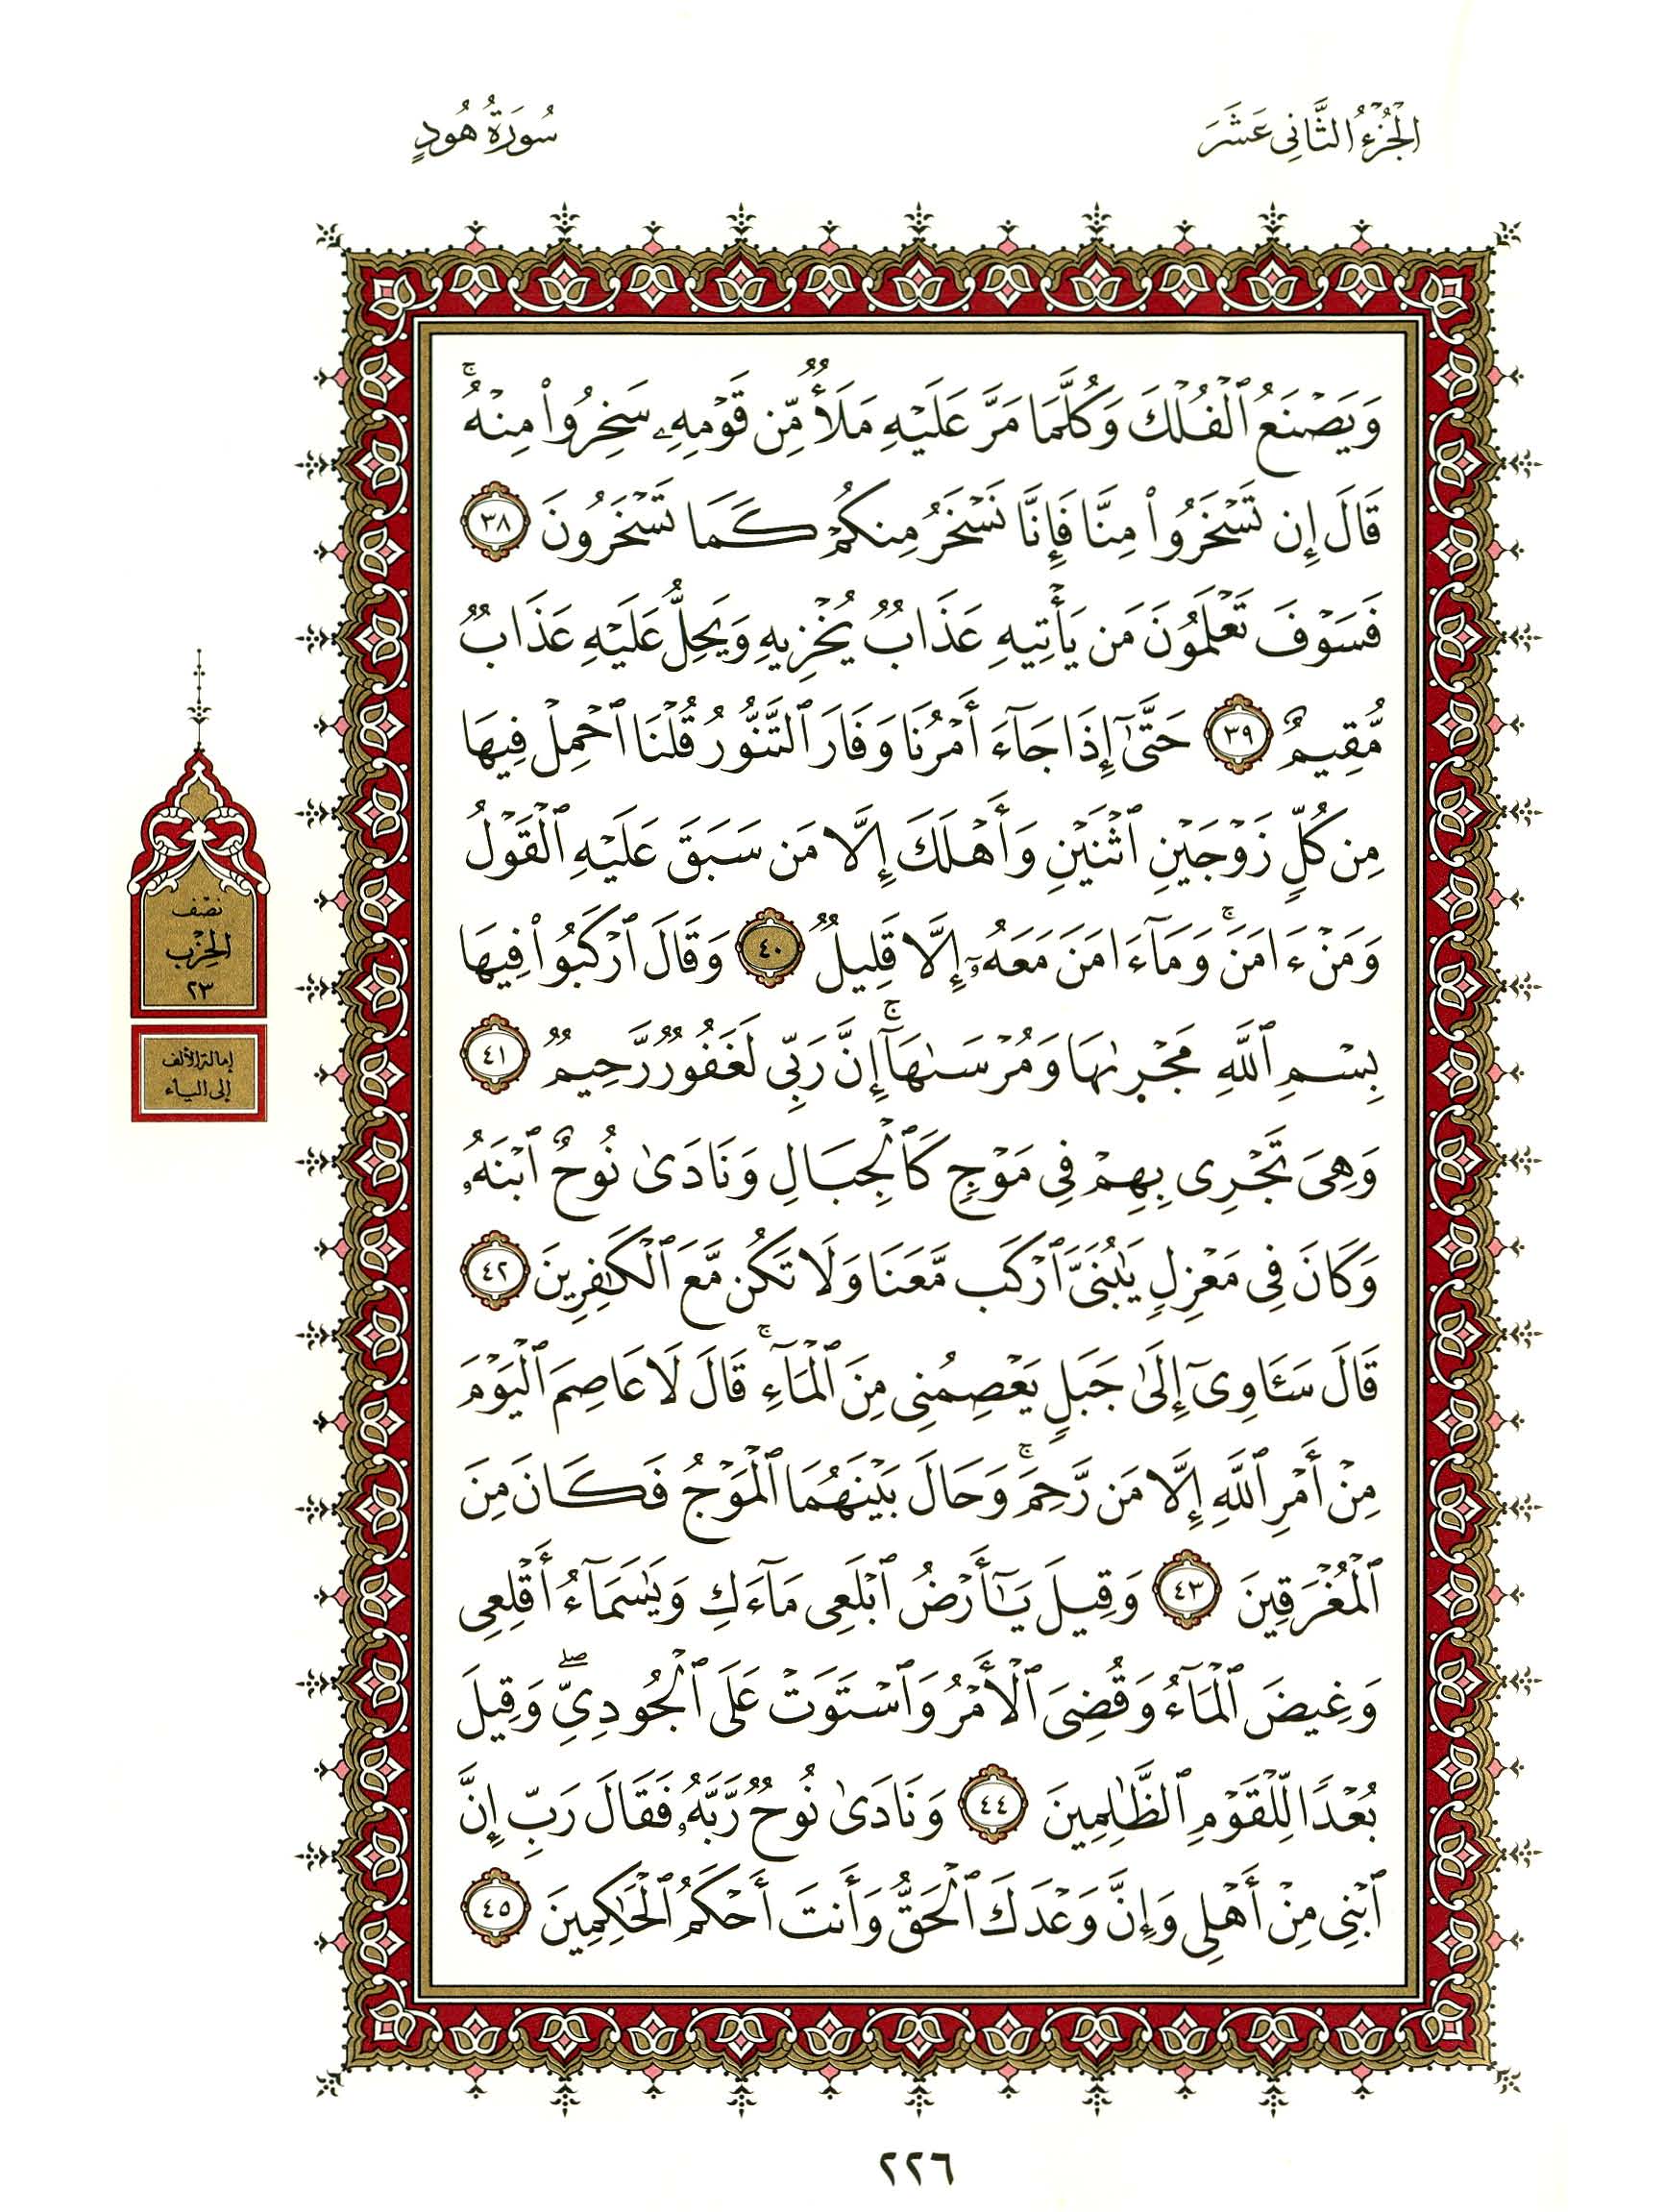 الجُزْءُ الثَّانِي عَشَرَ
سُورَةُ هُودٍ
وَيَصْنَعُ ٱلْفُلْكَ وَكُلَّمَا مَرَّ عَلَيْهِ مَلَأٌ مِّن قَوْمِهِۦ سَخِرُوا۟ مِنْهُ ۚ
قَالَ إِن تَسْخَرُوا۟ مِنَّا فَإِنَّا نَسْخَرُ مِنكُمْ كَمَا تَسْخَرُونَ ٣٨
فَسَوْفَ تَعْلَمُونَ مَن يَأْتِيهِ عَذَابٌ يُخْزِيهِ وَيَحِلُّ عَلَيْهِ عَذَابٌ
مُّقِيمٌ ٣٩ حَتَّىٰٓ إِذَا جَآءَ أَمْرُنَا وَفَارَ ٱلتَّنُّورُ قُلْنَا ٱحْمِلْ فِيهَا
مِن كُلٍّ زَوْجَيْنِ ٱثْنَيْنِ وَأَهْلَكَ إِلَّا مَن سَبَقَ عَلَيْهِ ٱلْقَوْلُ
وَمَنْ ءَامَنَ ۚ وَمَآ ءَامَنَ مَعَهُۥٓ إِلَّا قَلِيلٌ ٤٠ وَقَالَ ٱرْكَبُوا۟ فِيهَا
بِسْمِ ٱللَّهِ مَجْر۪ىٰهَا وَمُرْسَىٰهَآ ۚ إِنَّ رَبِّى لَغَفُورٌ رَّحِيمٌ ٤١
وَهِىَ تَجْرِى بِهِمْ فِى مَوْجٍ كَٱلْجِبَالِ وَنَادَىٰ نُوحٌ ٱبْنَهُۥ
وَكَانَ فِى مَعْزِلٍ يَٰبُنَىَّ ٱرْكَب مَّعَنَا وَلَا تَكُن مَّعَ ٱلْكَٰفِرِينَ ٤٢
قَالَ سَـَٔاوِىٓ إِلَىٰ جَبَلٍ يَعْصِمُنِى مِنَ ٱلْمَآءِ ۚ قَالَ لَا عَاصِمَ ٱلْيَوْمَ
مِنْ أَمْرِ ٱللَّهِ إِلَّا مَن رَّحِمَ ۚ وَحَالَ بَيْنَهُمَا ٱلْمَوْجُ فَكَانَ مِنَ
ٱلْمُغْرَقِينَ ٤٣ وَقِيلَ يَٰٓأَرْضُ ٱبْلَعِى مَآءَكِ وَيَٰسَمَآءُ أَقْلِعِى
وَغِيضَ ٱلْمَآءُ وَقُضِىَ ٱلْأَمْرُ وَٱسْتَوَتْ عَلَى ٱلْجُودِىِّ ۖ وَقِيلَ
بُعْدًا لِّلْقَوْمِ ٱلظَّٰلِمِينَ ٤٤ وَنَادَىٰ نُوحٌ رَّبَّهُۥ فَقَالَ رَبِّ إِنَّ
ٱبْنِى مِنْ أَهْلِى وَإِنَّ وَعْدَكَ ٱلْحَقُّ وَأَنتَ أَحْكَمُ ٱلْحَٰكِمِينَ ٤٥
نصف
الحزب
٢٣
إمالة الألف
إلى الياء
٢٢٦